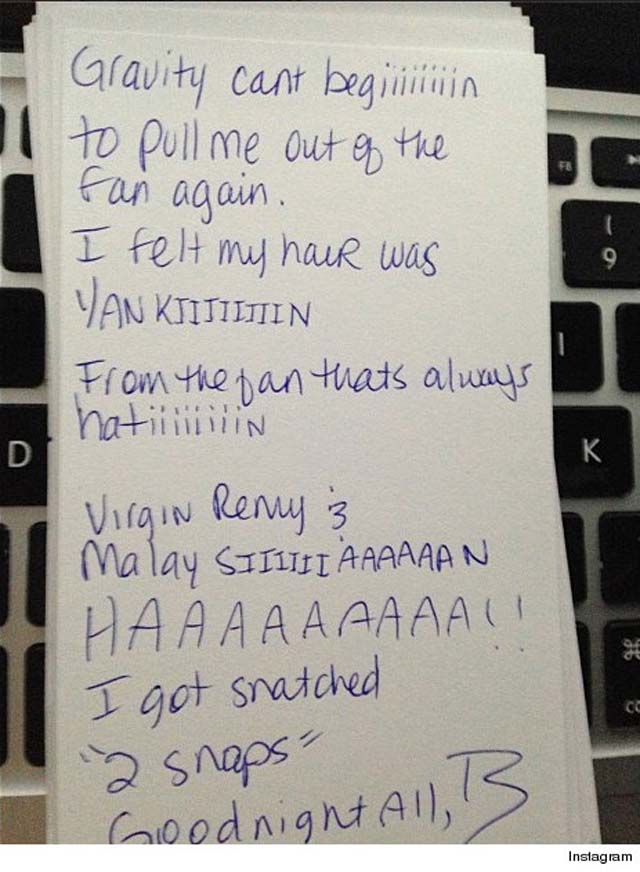 Gravity cant begiiiiiiiin
to pull me out of the
fan again.
I felt my haiR was
YANKIIIIIIIIN
From the fan thats always
hatiiiiiiiiiN
Virgin Remy &
Malay SIIIIIIAAAAAAN
HAAAAAAAAA!!
I got snatched
"2 snaps"
Goodnight All, B
F8
(
9
I
D
K
⌘
Instagram